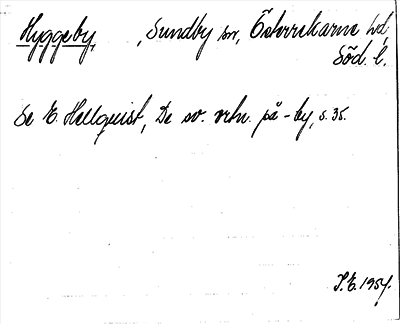 Hyggeby, , Sundby sn, Österrekarne hd,
Söd. l.
Se E. Hellquist, De sv. ortn. på -by, s. 35.
I.E. 1954.